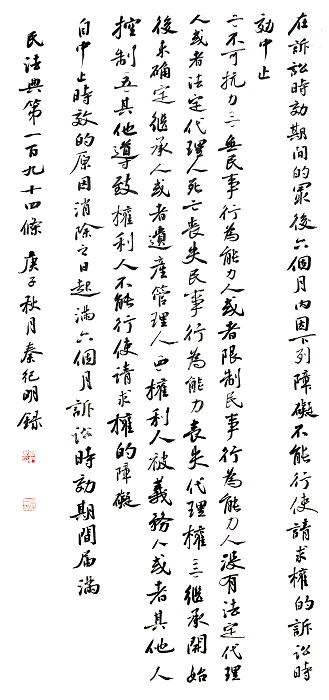 在訴訟時効期间的最後六個月内因下列障礙不能行使請求權的訴訟時
効中止
一不可抗力二無民事行為能力人或者限制民事行為能力人没有法定代理
人或者法定代理人死亡喪失民事行為能力喪失代理權三繼承開始
後未确定繼承人或者遺產管理人四權利人被義務人或者其他人
控制五其他導致權利人不能行使請求權的障礙
自中止時效的原因消除之日起満六個月訴訟時効期間届満
民法典第一百九十四條 庚子秋月秦紀明録